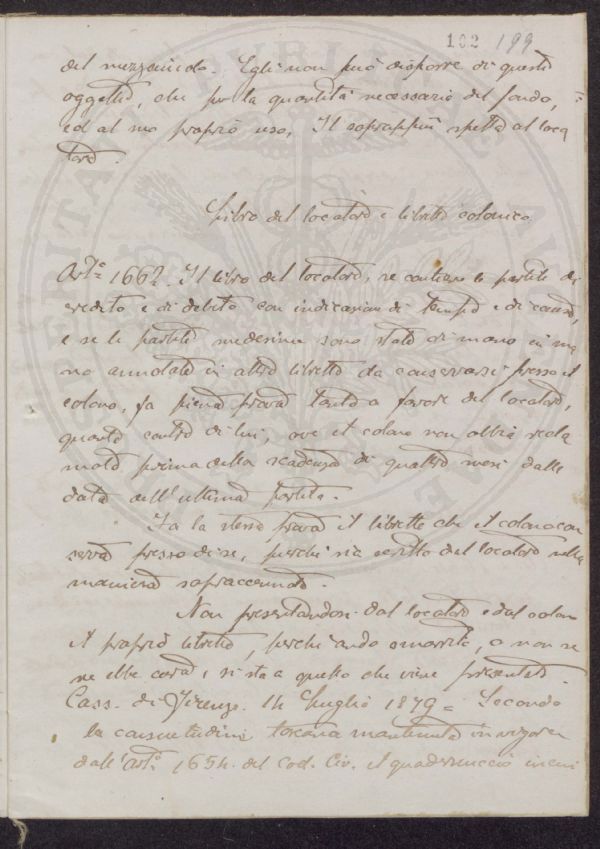 102 199
del mezzaiuolo. Egli non può disporre di questi
oggetti, che per la quantità necessaria del fondo,
ed al suo proprio uso. Il soprappiù spetta al loca
tore.
Libro del locatore e libretto colonico
Art.º 1662. Il libro del locatore, se contiene le partite di
credito e di debito con indicazioni di tempo e di causa,
e se le partite medesime sono state di mano in ma
no annotate in altro libretto da conservarsi presso il
colono, fa piena prova tanto a favore del locatore,
quanto contro di lui, ove il colono non abbia recla
mato prima della scadenza di quattro mesi dalla
data dell'ultima partita.
Fa la stessa prova il libretto che il colono con
serva presso di se, purchè sia scritto dal locatore nella
maniera sopraccennata.
Non presentandosi dal locatore e dal colono
il proprio libretto, perchè andò smarrito, o non se
ne ebbe cura, si sta a quello che viene presentato.
Cass. di Firenze. 14 Luglio 1879 = Secondo
la consuetudine toscana mantenuta in vigore
dall'Art.º 1654. del Cod. Civ. il quadernuccio in cui